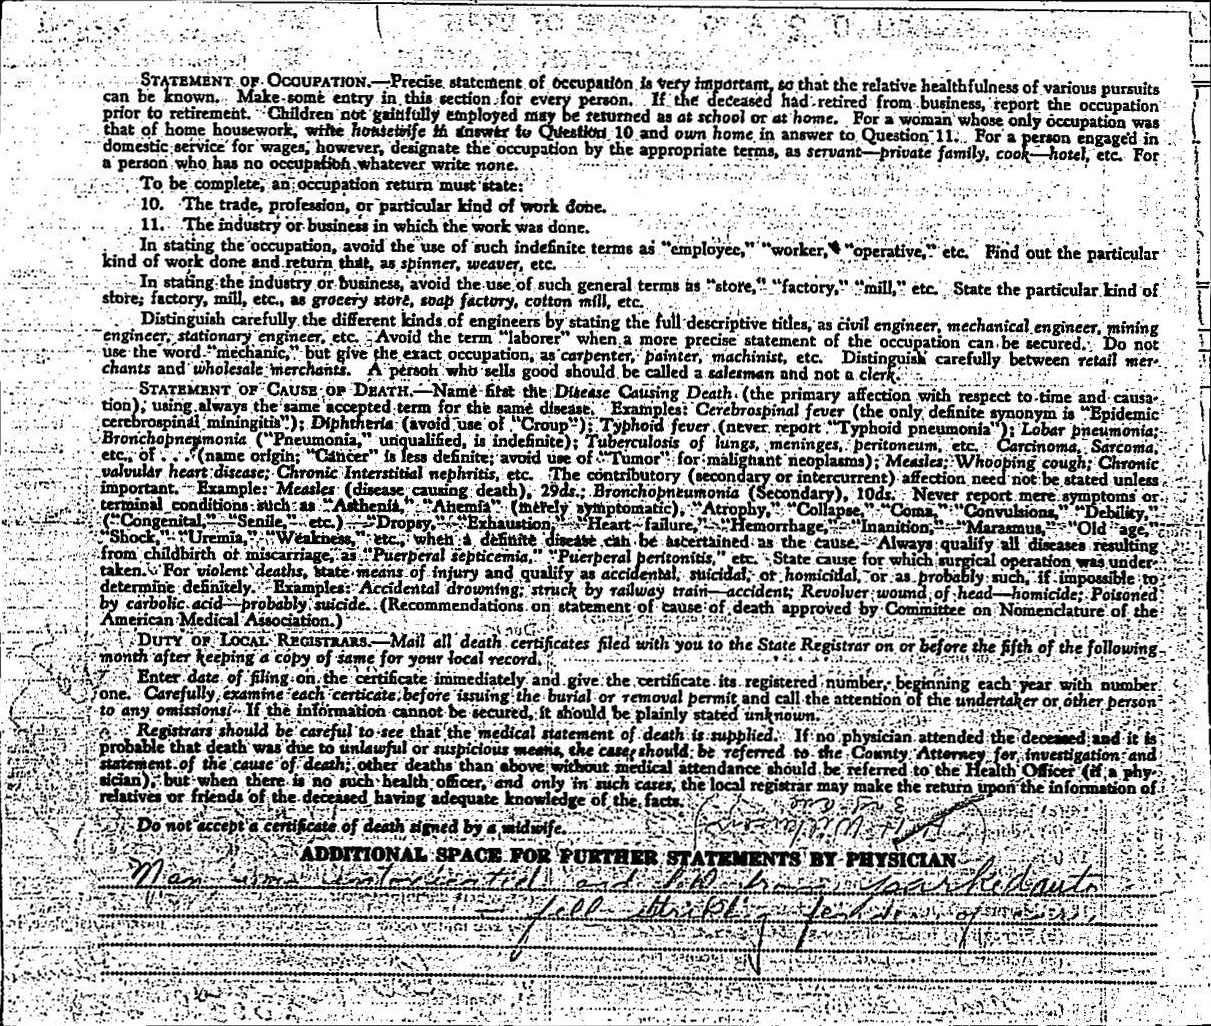 STATEMENT OF OCCUPATION.—Precise statement of occupation is very important, so that the relative healthfulness of various pursuits
can be known. Make some entry in this section for every person. If the deceased had retired from business, report the occupation
prior to retirement. Children not gainfully employed may be returned as at school or at home. For a woman whose only occupation was
that of home housework, write housewife in answer to Question 10 and own home in answer to Question 11. For a person engaged in
domestic service for wages, however, designate the occupation by the appropriate terms, as servant—private family, cook—hotel, etc. For
a person who has no occupation whatever write none.
To be complete, an occupation return must state:
10. The trade, profession, or particular kind of work done.
11. The industry or business in which the work was done.
In stating the occupation, avoid the use of such indefinite terms as "employee," "worker," "operative," etc. Find out the particular
kind of work done and return that, as spinner, weaver, etc.
In stating the industry or business, avoid the use of such general terms as "store," "factory," "mill," etc. State the particular kind of
store, factory, mill, etc., as grocery store, soap factory, cotton mill, etc.
Distinguish carefully the different kinds of engineers by stating the full descriptive titles, as civil engineer, mechanical engineer, mining
engineer, stationary engineer, etc. Avoid the term "laborer" when a more precise statement of the occupation can be secured. Do not
use the word "mechanic," but give the exact occupation, as carpenter, painter, machinist, etc. Distinguish carefully between retail mer-
chants and wholesale merchants. A person who sells good should be called a salesman and not a clerk.
STATEMENT OF CAUSE OF DEATH.—Name first the Disease Causing Death (the primary affection with respect to time and causa-
tion), using always the same accepted term for the same disease. Examples: Cerebrospinal fever (the only definite synonym is "Epidemic
cerebrospinal miningitis"); Diphtheria (avoid use of "Croup"); Typhoid fever (never report "Typhoid pneumonia"); Lobar pneumonia;
Bronchopneumonia ("Pneumonia," unqualified, is indefinite); Tuberculosis of lungs, meninges, peritoneum, etc. Carcinoma, Sarcoma,
etc., of . . . (name origin; "Cancer" is less definite; avoid use of "Tumor" for malignant neoplasms); Measles; Whooping cough; Chronic
valvular heart disease; Chronic Interstitial nephritis, etc. The contributory (secondary or intercurrent) affection need not be stated unless
important. Example: Measles (disease causing death), 29ds.; Bronchopneumonia (Secondary), 10ds. Never report mere symptoms or
terminal conditions such as "Asthenia," "Anemia" (merely symptomatic), "Atrophy," "Collapse," "Coma," "Convulsions," "Debility,"
("Congenital," "Senile," etc.) "Dropsy," "Exhaustion," "Heart failure," "Hemorrhage," "Inanition," "Marasmus," "Old age,"
"Shock," "Uremia," "Weakness," etc., when a definite disease can be ascertained as the cause. Always qualify all diseases resulting
from childbirth or miscarriage, as "Puerperal septicemia," "Puerperal peritonitis," etc. State cause for which surgical operation was under-
taken. For violent deaths, state means of injury and qualify as accidental, suicidal, or homicidal, or as probably such, if impossible to
determine definitely. Examples: Accidental drowning; struck by railway train—accident; Revolver wound of head—homicide; Poisoned
by carbolic acid—probably suicide. (Recommendations on statement of cause of death approved by Committee on Nomenclature of the
American Medical Association.)
DUTY OF LOCAL REGISTRARS.—Mail all death certificates filed with you to the State Registrar on or before the fifth of the following
month after keeping a copy of same for your local record.
Enter date of filing on the certificate immediately and give the certificate its registered number, beginning each year with number
one. Carefully examine each certicate before issuing the burial or removal permit and call the attention of the undertaker or other person
to any omissions. If the information cannot be secured, it should be plainly stated unknown.
Registrars should be careful to see that the medical statement of death is supplied. If no physician attended the deceased and it is
probable that death was due to unlawful or suspicious means, the case should be referred to the County Attorney for investigation and
statement of the cause of death; other deaths than above without medical attendance should be referred to the Health Officer (if a phy-
sician), but when there is no such health officer, and only in such cases, the local registrar may make the return upon the information of
relatives or friends of the deceased having adequate knowledge of the facts.
Do not accept a certificate of death signed by a midwife.
ADDITIONAL SPACE FOR FURTHER STATEMENTS BY PHYSICIAN
Man was intoxicated and from parked auto
fell striking of